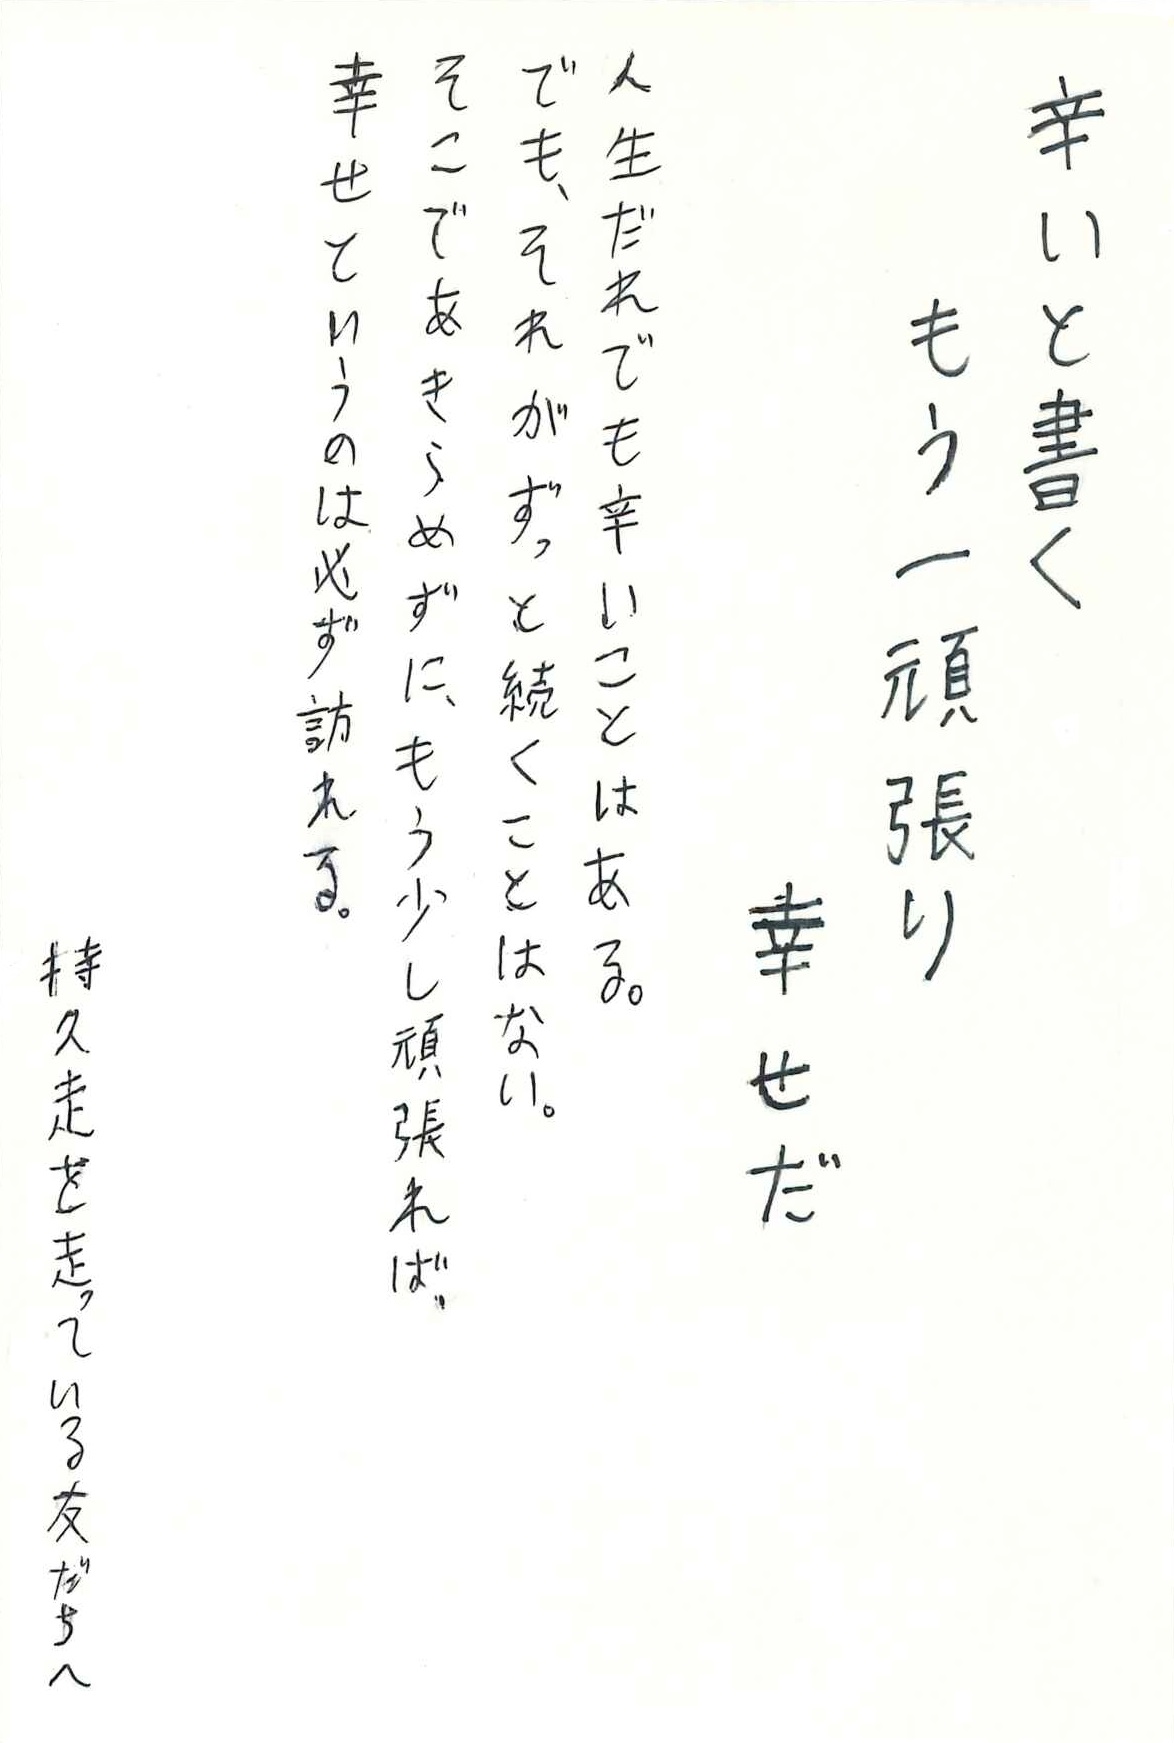 辛いと書く
もう一頑張り
幸せだ
人生だれでも辛いことはある。
でも、それがずっと続くことはない。
そこであきらめずに、もう少し頑張れば、
幸せというのは必ず訪れる。
持久走を走っている友だちへ